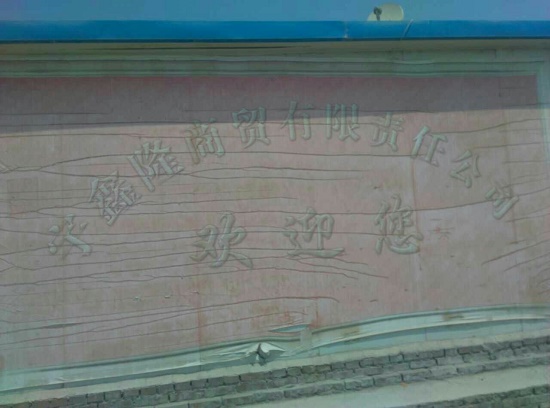 鑫隆商贸有限责任公司
欢迎您